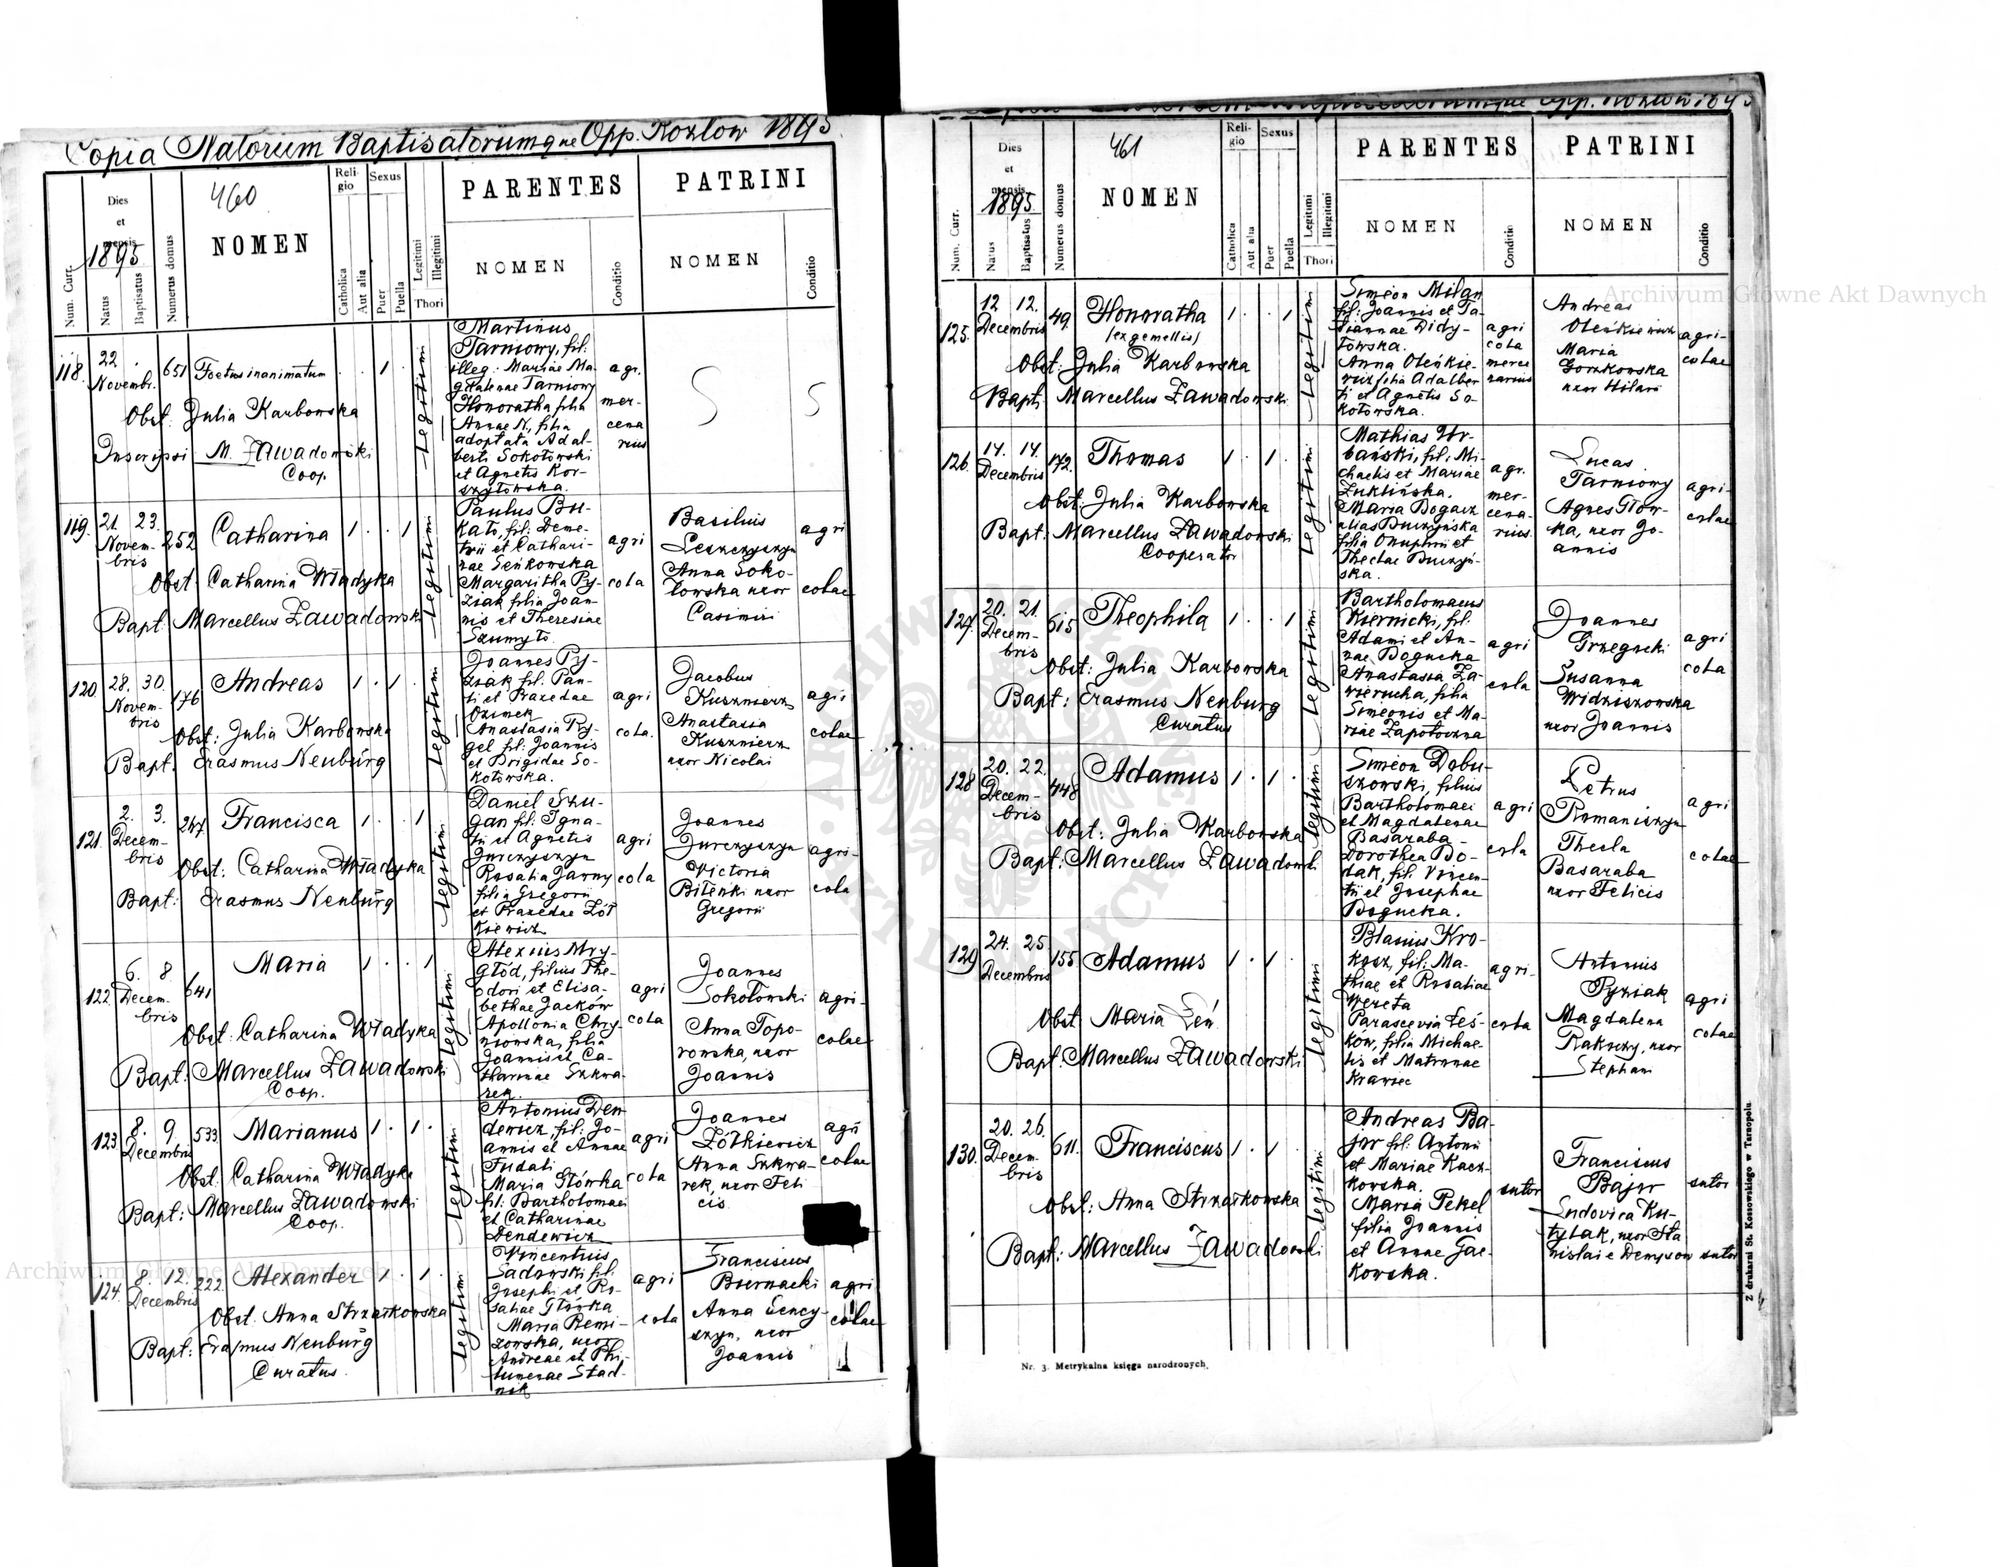 Copia Natorum Baptisatorumque Opp. Kozłow 1895
460
Num. Curr.
Dies
et
mensis
1895
Natus
Baptisatus
Numerus domus
NOMEN
Reli-
gio
Catholica
Aut alia
Sexus
Puer
Puella
Legitimi
Illegitimi
Thori
PARENTES
NOMEN
Conditio
PATRINI
NOMEN
Conditio
118.
22
Novembr.
651
Foetus inanimatum
1
Obst. Julia Karbowska
Inscripsi M. Zawadowski
Coop.
Legitimi
Martinus
Tarnowy, fil.
illeg. Mariae Ma-
gdalenae Tarnowy
Honoratha filia
Annae N., filia
adoptata Adal-
berti Sokołowski
et Agnetis Kor-
szyłowska.
agr.
mer-
cena
rius
119.
21. 23.
Novem-
bris
252
Catharina
1 . . 1
Obst. Catharina Władyka
Bapt. Marcellus Zawadowski
Legitimi
Paulus Bu-
kało, fil. Deme-
trii et Cathari-
nae Seńkowska
Margaritha Py-
ziak filia Joan-
nis et Theresiae
Szumyło.
agri
cola
Basilius
Leszczyszyn
Anna Soko-
łowska uxor
Casimiri
agri
colae
120.
28. 30.
Novem-
bris
176
Andreas
1 . 1 .
Obst: Julia Karbowska
Bapt. Erasmus Neuburg
Legitimi
Joannes Py-
ziak fil. Pan-
ti et Praxedae
Ozimek
Anastasia Ry-
gel fil. Joannis
et Brigidae So-
kołowska.
agri
cola.
Jacobus
Kuszmierz
Anastasia
Kuszmierz
uxor Nicolai
agri
colae
121.
2. 3.
Decem-
bris
247
Francisca
1 . . 1
Obst: Catharina Władyka
Bapt: Erasmus Neuburg
Legitimi
Daniel Szu-
gan fil. Igna-
tii et Agnetis
Jurczyszyn
Rosalia Jarny
filia Gregorii
et Praxedae Żół
kiewicz
agri
cola
Joannes
Jurczyszyn
Victoria
Bileńki uxor
Gregorii
agri-
cola
122.
6. 8
Decem-
bris
641
Maria
1 . . 1
Obst. Catharina Władyka
Bapt. Marcellus Zawadowski
Coop.
Legitimi
Alexius Mry-
głód, filius The-
odori et Elisa-
bethae Jacków
Apollonia Chry-
niowska, filia
Joannis et Ca-
tharinae Szkwa-
rek.
agri
cola
Joannes
Sokołowski
Anna Topo-
rowska, uxor
Joannis
agri-
colae
123.
8. 9.
Decembris
533
Marianus
1 . 1 .
Obst. Catharina Władyka
Bapt: Marcellus Zawadowski
Coop.
Legitimi
Antonius Den
dewicz, fil. Jo-
annis et Annae
Fudali
Maria Główka
fil. Bartholomaei
et Catharinae
Dendewicz
agri
cola
Joannes
Żółkiewicz
Anna Szkwa-
rek, uxor Feli
cis
agri
colae
124.
8. 12.
Decembris
222.
Alexander
1 . 1 .
Obst. Anna Strzałkowska
Bapt: Erasmus Neuburg
Curatus.
Legitimi
Vincentius
Sadowski fil.
Josephi et Ro-
saliae Główka
Maria Remi-
zowska, uxor
Andreae et Phi-
lumenae Stad-
nik
agri
cola
Franciscus
Biernacki
Anna Sency-
szyn, uxor
Joannis
agri
colae
461
Num. Curr.
Dies
et
mensis
1895
Natus
Baptisatus
Numerus domus
NOMEN
Reli-
gio
Catholica
Aut alia
Sexus
Puer
Puella
Legitimi
Illegitimi
Thori
PARENTES
NOMEN
Conditio
PATRINI
NOMEN
Conditio
125.
12 12.
Decembris
49
Honoratha
(ex gemellis)
1 . . 1
Obst: Julia Karbowska
Bapt. Marcellus Zawadowski
Legitimi
Simeon Milan
fil: Joannis et Ta-
tiannae Didy-
łowska.
Anna Oleńkie-
wicz filia Adalber
ti et Agnetis So-
kołowska.
agri
cola
merce
narius
Andreas
Oleńkiewicz
Maria
Gorzkowska
uxor Hilarii
agri-
colae
126.
14. 14.
Decembris
172.
Thomas
1 . 1 .
Obst. Julia Karbowska
Bapt: Marcellus Zawadowski
Cooperator
Legitimi
Mathias Ur-
bański, fil: Mi-
chaelis et Mariae
Żuklińska.
Maria Bogacz
alias Buczyńska
filia Onuphrii et
Theclae Buczyń-
ska.
agr.
mer-
cena-
rius
Lucas
Tarnowy
Agnes Głów-
ka, uxor Jo-
annis
agri-
colae
127.
20. 21.
Decem-
bris
615
Theophila
1 . . 1
Obst: Julia Karbowska
Bapt: Erasmus Neuburg
Curatus
Legitimi
Bartholomaeus
Kiernicki, fil.
Adami et An-
nae Bogucka
Anastasia Za-
wierucha, filia
Simeonis et Ma-
riae Zapotoczna
agri
cola
Joannes
Grzegucki
Susanna
Widziszowska
uxor Joannis
agri
cola
128
20. 22.
Decem-
bris
448
Adamus
1 . 1 .
Obst: Julia Karbowska
Bapt: Marcellus Zawadowski
Legitimi
Simeon Dobu-
szowski, filius
Bartholomaei
et Magdalenae
Basaraba
Dorothea Do-
dak, fil. Vincen-
tii et Josephae
Bogucka.
agri
cola
Petrus
Romaniszyn
Thecla
Basaraba
uxor Felicis
agri
colae
129
24. 25.
Decembris
155
Adamus
1 . 1 .
Obst. Maria Leń
Bapt. Marcellus Zawadowski
Legitimi
Blasius Kro-
kosz, fil: Ma-
thiae et Rosaliae
Wereta
Parascevia Leś-
ków, filia Michae-
lis et Matronae
Krawiec
agri-
cola
Antonius
Pyziak
Magdalena
Rakoczy, uxor
Stephani
agri
colae
130.
20. 26.
Decem-
bris
611.
Franciscus
1 . 1
Obst: Anna Strzałkowska
Bapt: Marcellus Zawadowski
Legitimi
Andreas Ba-
jor fil. Antonii
et Mariae Kacz-
kowska.
Maria Pekel
filia Joannis
et Annae Gac-
kowska.
sutor
Franciscus
Bajor
Ludovica Ku-
tylak, uxor Sta
nislai e Denysow
sutor
sutor
Nr. 3. Metrykalna księga narodzonych.
Z drukarni St. Kossowskiego w Tarnopolu
Archiwum Główne Akt Dawnych
Archiwum Główne Akt Dawnych